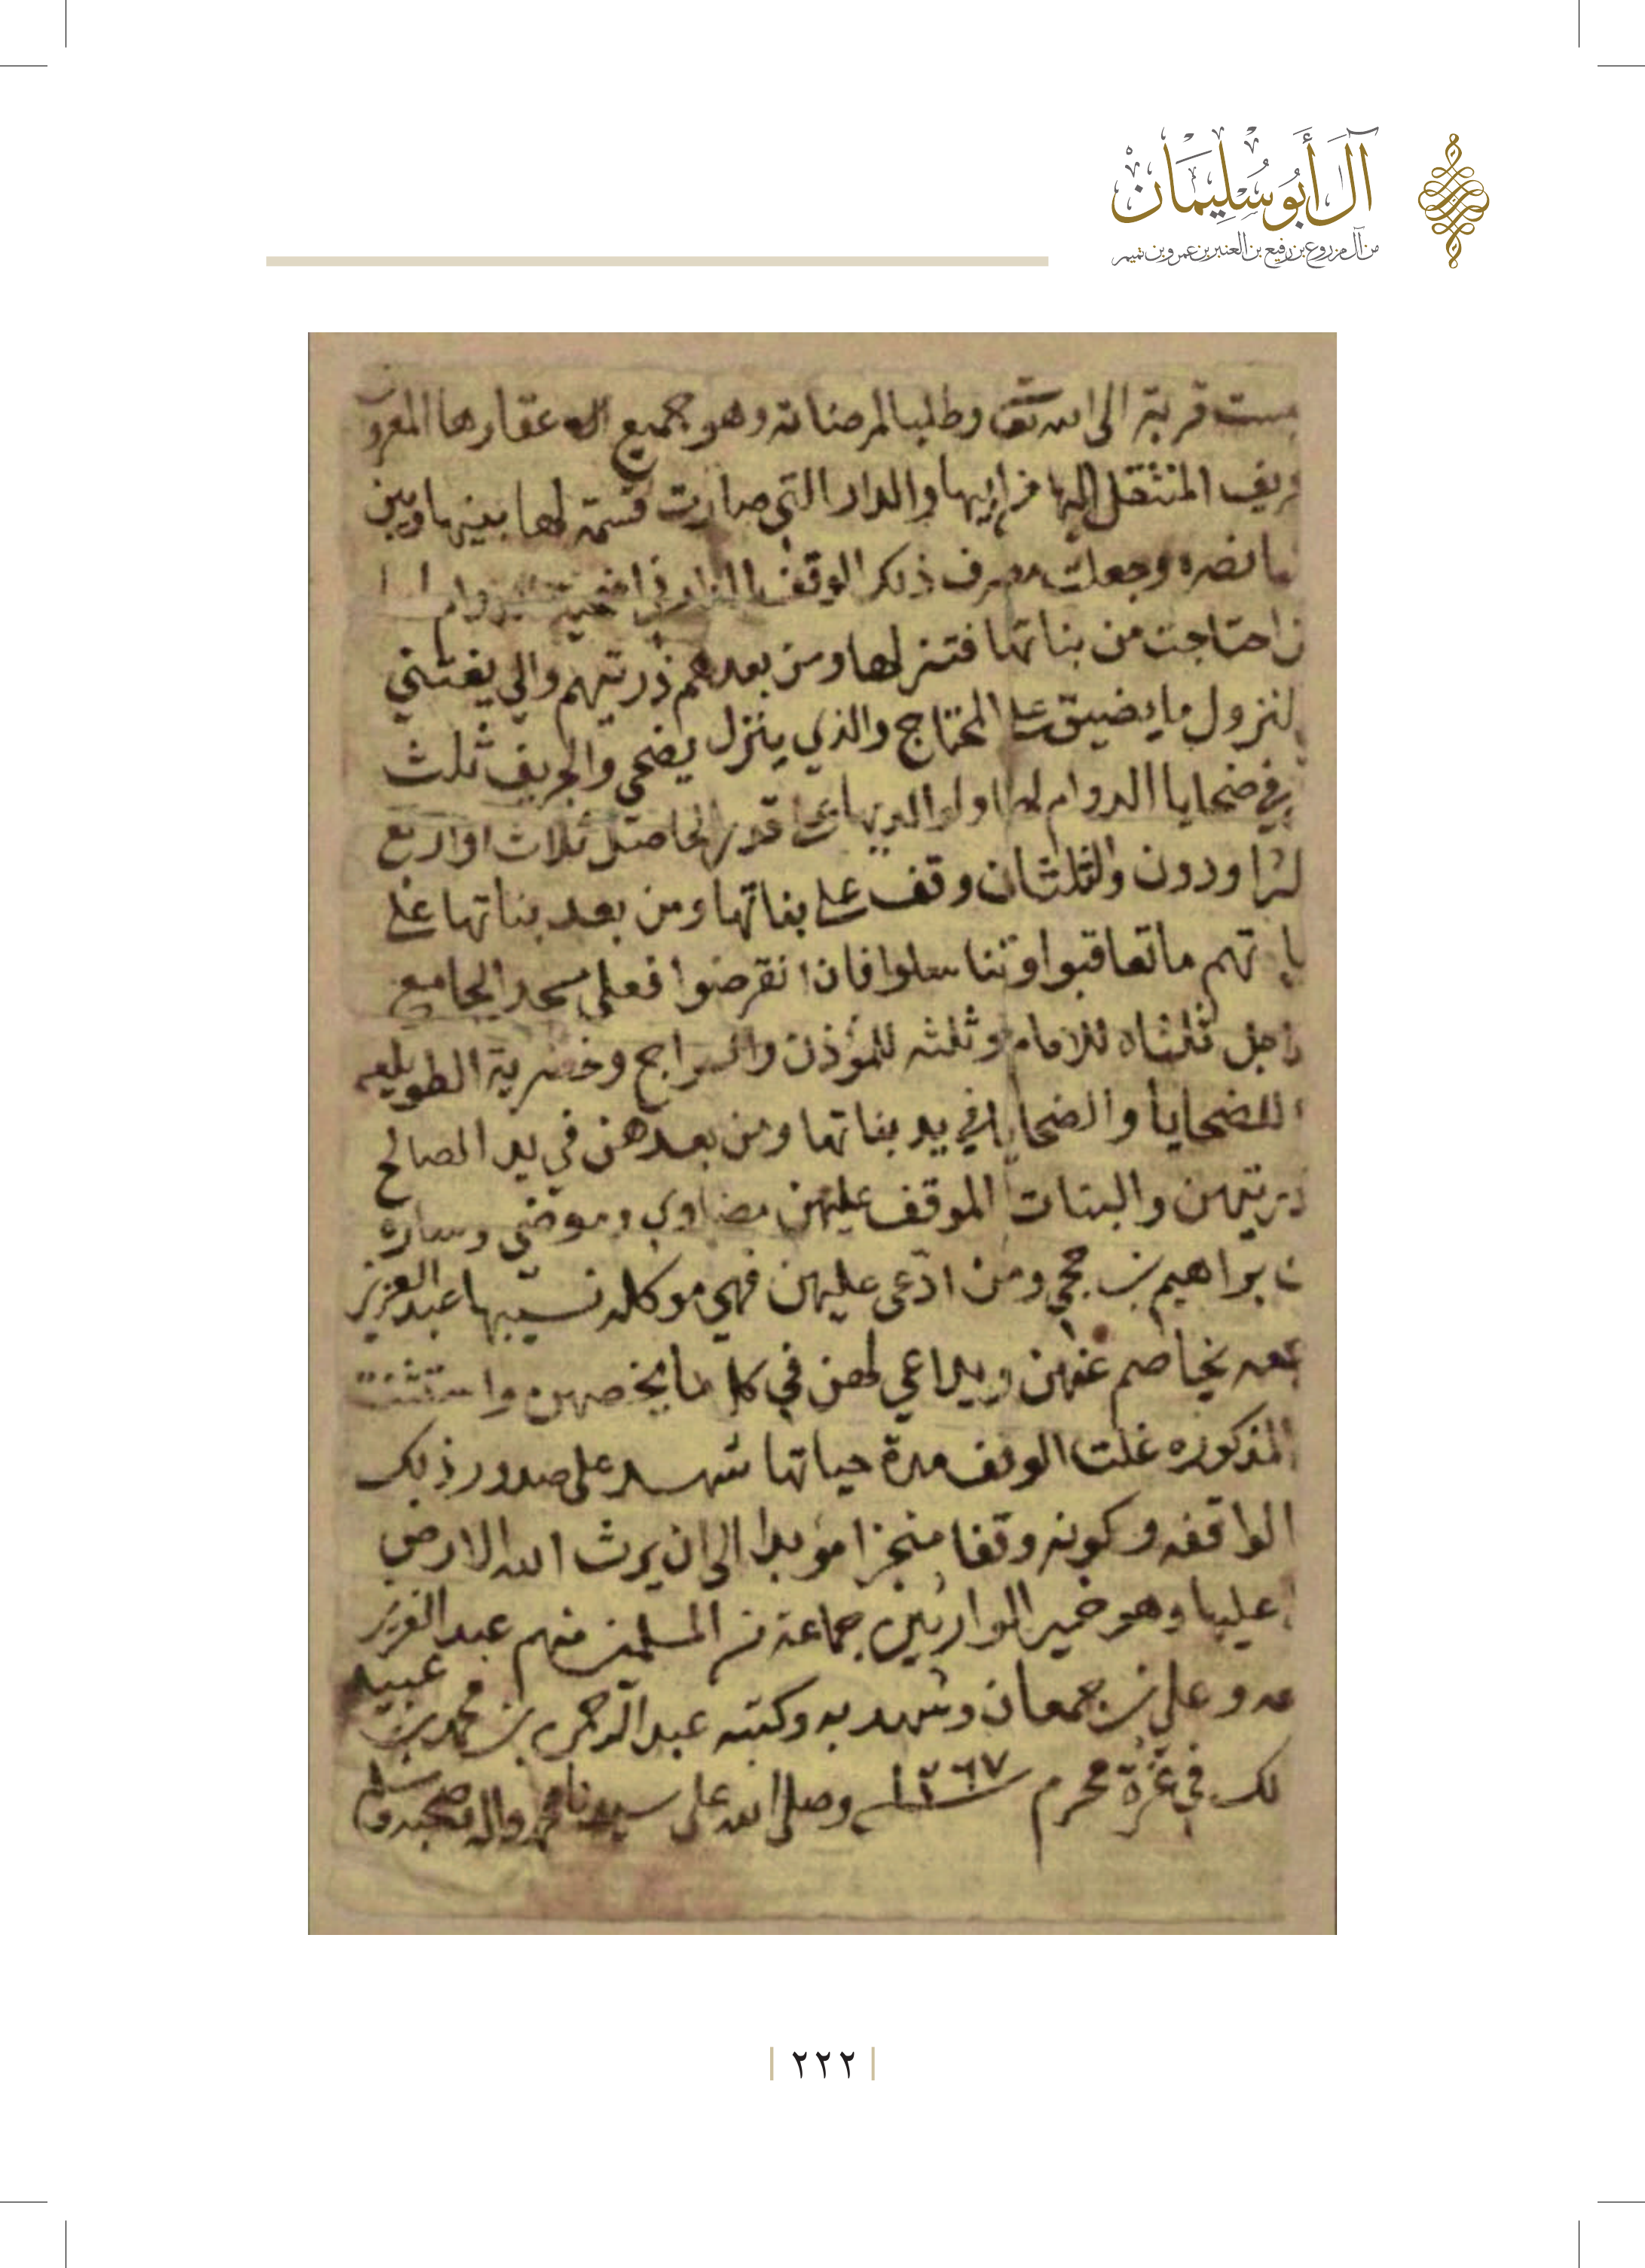 آل أبو سليمان
من آل مزروع بن رفيع بن العنبر بن عمرو بن تميم
قربة الى الله تعالى وطلبا لمرضاته وهو جميع عقارها المعروف
المنتقل اليها من ابيها والدار التي صارت قسمة لها بينها وبين
وجعلت مصرف ذلك الوقف الدار في
احتاجت من بناتها فتنزلها ومن بعدهم ذريتهم والي يغتني
لنزول ما يضيق على المحتاج والذي ينزل يضحي والجريف ثلث
في ضحايا الدوام لها ولوالديها على قدر الحاصل ثلاث او اربع
ودون والثلثان وقف على بناتها ومن بعد بناتها على
تهم ما تعاقبوا وتناسلوا فان انقرضوا فعلى مسجد الجامع
ثلثاه للامام وثلثه للمؤذن والسراج وخضرية الطويلعه
للضحايا والضحايا في يد بناتها ومن بعدهن في يد الصالح
والبنات الموقف عليهن مضاوي وموضي وساره
براهيم بن حجي ومن ادعى عليهن فهي موكله نسيبها عبدالعزيز
يخاصم عنهن ويداعي لهن في كل ما يخصهن واستثنت
المذكوره غلت الوقف مدة حياتها شهد على صدور ذلك
الواقفه وكونه وقفا منجزا مؤبدا الى ان يرث الله الارض
عليها وهو خير الوارثين جماعة من المسلمين منهم عبدالعزيز
وعلي بن جمعان وشهد به وكتبه عبدالرحمن بن محمد بن عبيد
لك في غرة محرم سنة ١٢٦٧ وصلى الله على سيدنا محمد واله وصحبه وسلم
٢٢٢